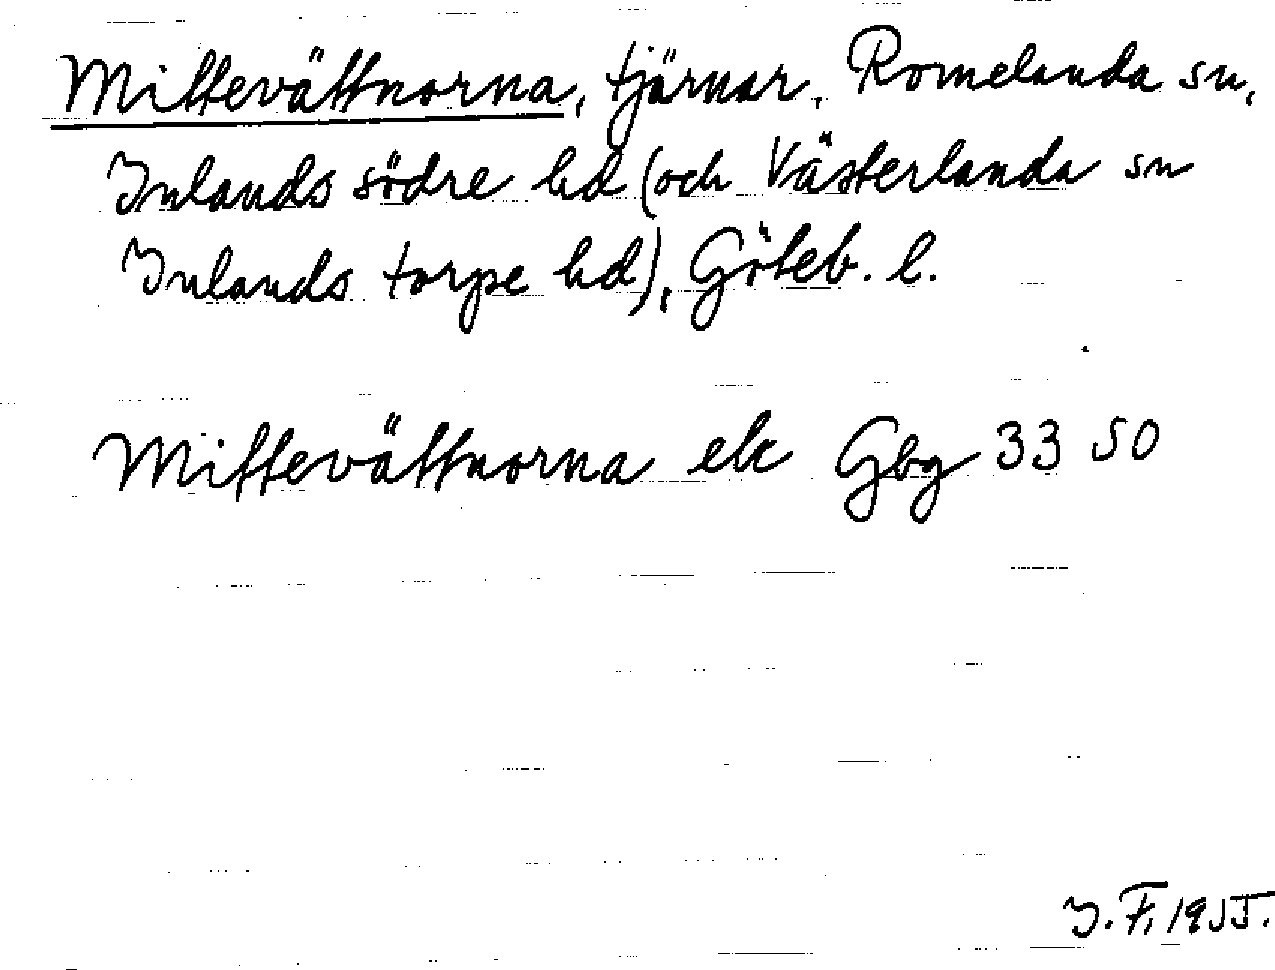 Mittevättnorna, tjärnar, Romelanda sn,
Inlands södre hd (och Västerlanda sn
Inlands torpe hd), Göteb. l.
Mittevättnorna ek Gbg 33 50
J. F. 1955.